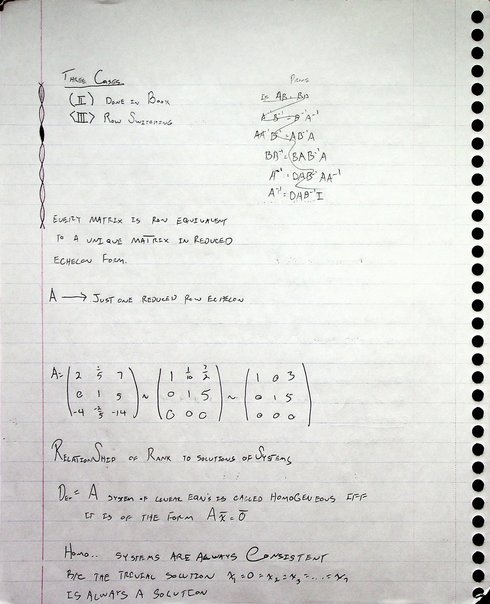 Three Cases
(II) Done in Book
(III) Row Switching
Prove
If AB = BA
A⁻¹B⁻¹ = B⁻¹A⁻¹
AA⁻¹B⁻¹ = AB⁻¹A
BA⁻¹ = BAB⁻¹A
A⁻¹ = BAB⁻¹AA⁻¹
A⁻¹ = BAB⁻¹I
Every matrix is row equivalent
to a unique matrix in reduced
echelon form.
A → Just one reduced row echelon
A = ( 2 1/5 7 ) ~ ( 1 1/10 7/2 ) ~ ( 1 0 3 )
( 0 1 5 ) ( 0 1 5 ) ( 0 1 5 )
( -4 -2/5 -14 ) ( 0 0 0 ) ( 0 0 0 )
Relationship of Rank to solutions of Systems
Def: A system of linear eqn's is called homogeneous iff
it is of the form Ax̄ = 0̄
Homo.. systems are always Consistent
b/c the trivial solution x₁=0=x₂=x₃=....=xₙ
is always a solution